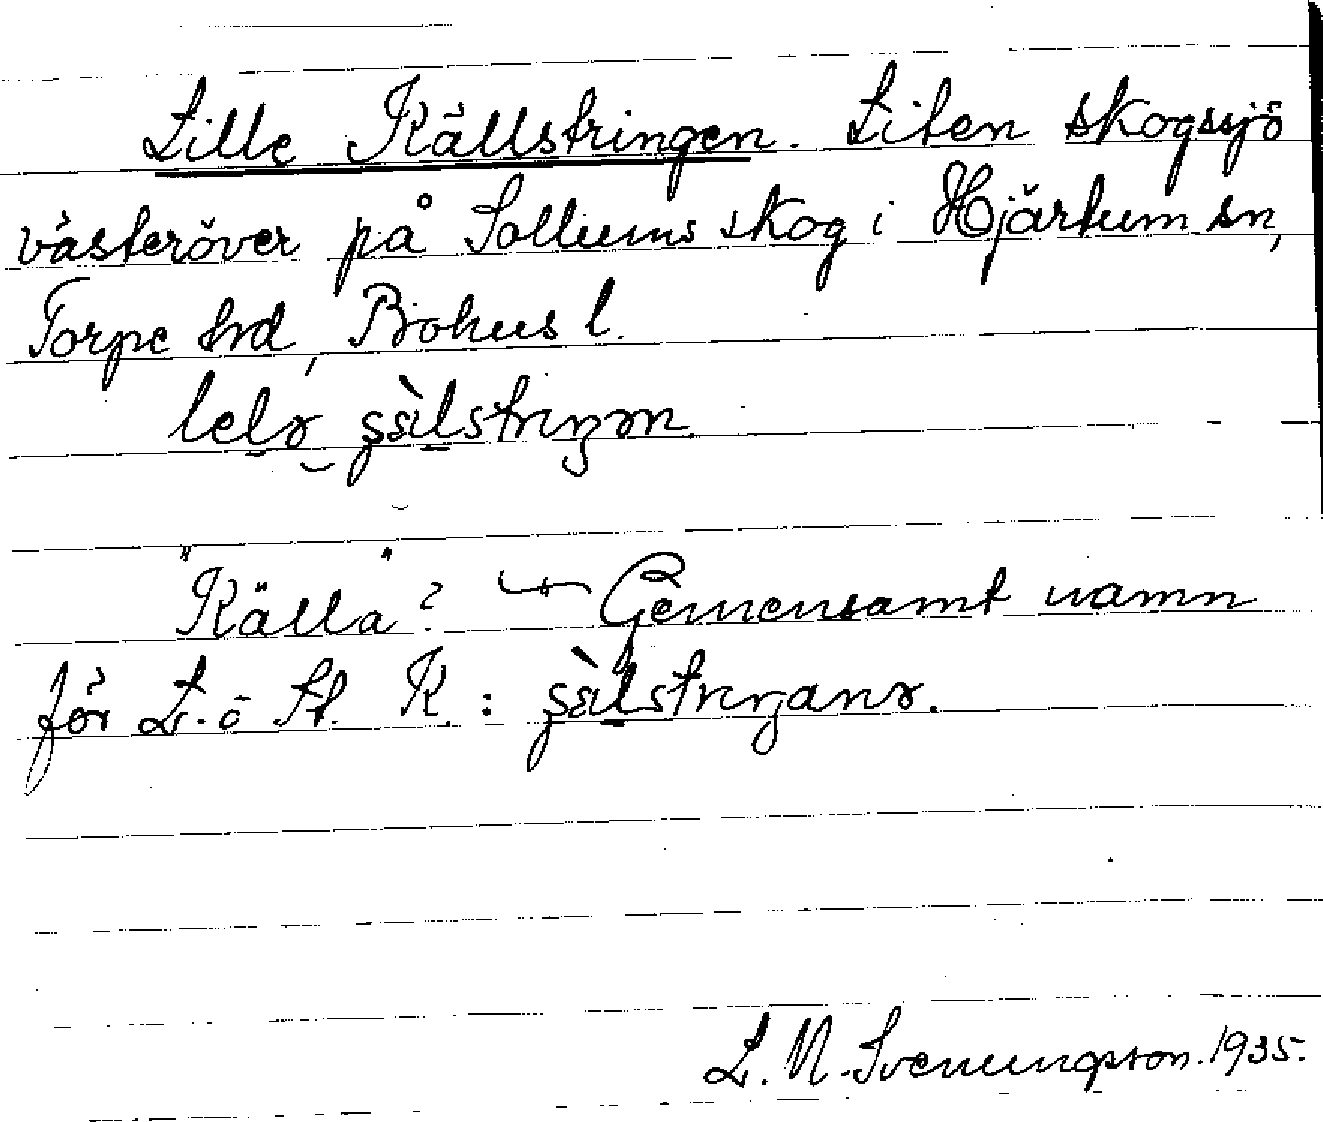 Lille Källstringen. Liten skogssjö
västeröver på Sollums skog i Hjärtum sn,
Torpe hd, Bohus l.
"Källa"? — Gemensamt namn
för L. o St. K.:
L. N. Svenungsson. 1935.